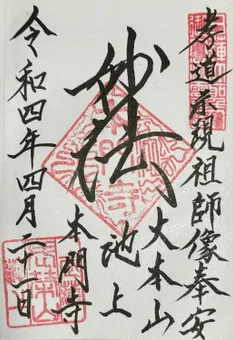 孝道示現祖師像奉安
妙法
大本山
池上
本門寺
令和四年四月二十一日